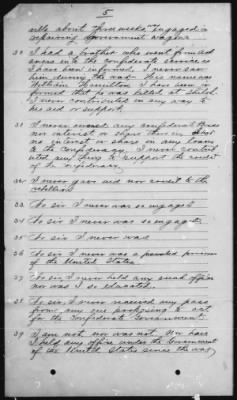 5
ville about three weeks engaged in
repairing Government wagons
30 I had a brother who went from Ark
ansas into the Confederate service as
I have been informed. I never saw
him during the war. His name was
William Hamilton I have been in
formed that he was killed at Shiloh.
I never contributed in any way to
his aid or support
31 I never owned any confederate Bonds
no interest or share therein
no interest or share in any loans
to the Confederacy. I never contrib
uted any thing to support the credit
of the confederacy
32 I never gave aid nor credit to the
rebellion
33 No sir I never was so engaged
34 No sir I never was so engaged
35 No sir I never was
36 No sir I never was a paroled prisoner
of the United States
37 No sir I never held any such office
nor was I so educated.
38 No sir, I never received any pass
from any one professing to act
for the Confederate Government.
39 I am not nor was not. Nor have
I held any office under the Government
of the United States since the war